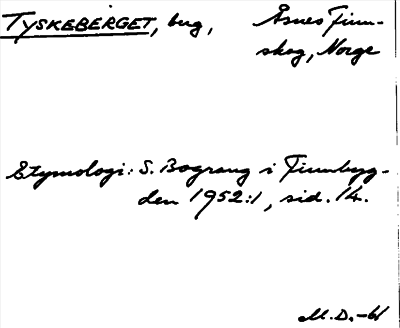 TYSKEBERGET, berg, Åsnes Finn-
skog, Norge
Etymologi: S. Bograng i Finnbyg-
den 1952:1, sid. 14.
M. D.-W